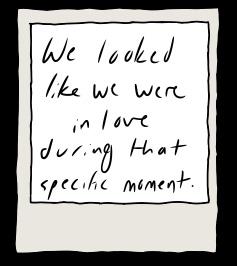 We looked
like we were
in love
during that
specific moment.